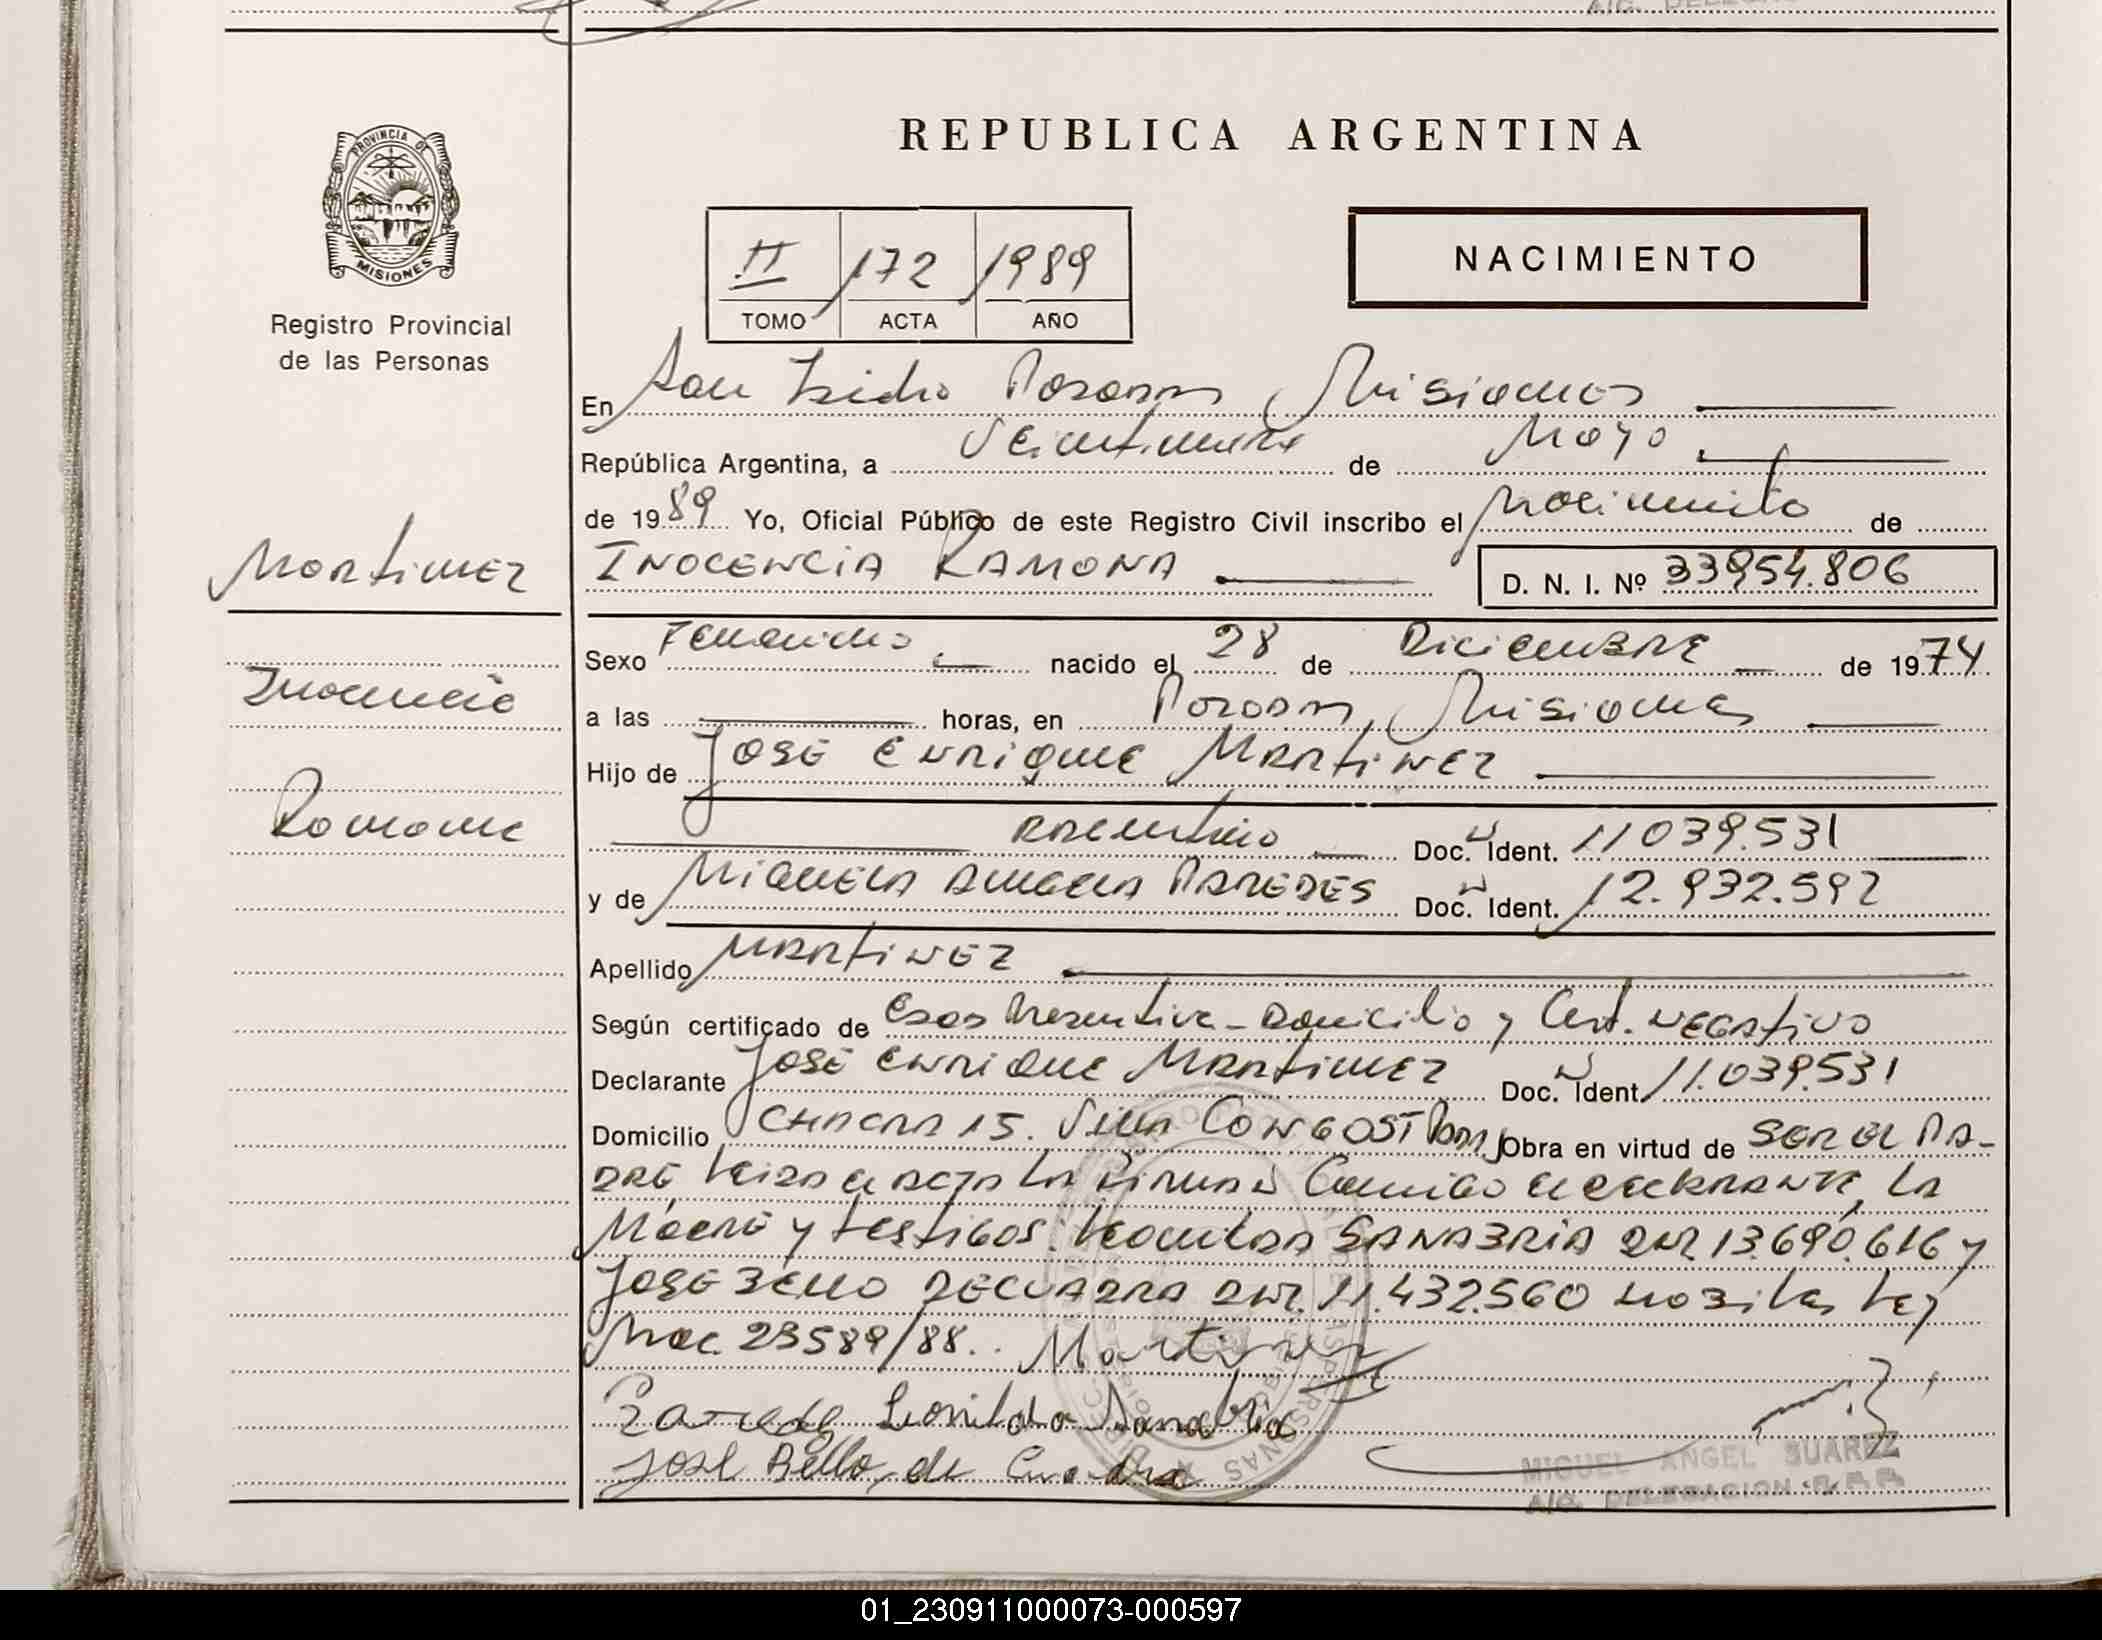 PROVINCIA DE
MISIONES
Registro Provincial
de las Personas
REPUBLICA ARGENTINA
II 172 1989
TOMO ACTA AÑO
NACIMIENTO
En San Isidro Posadas, Misiones
República Argentina, a Veintinueve de Mayo
de 1989 Yo, Oficial Público de este Registro Civil inscribo el Nacimiento de
Martinez
INOCENCIA RAMONA D. N. I. Nº 33954.806
Sexo Femenino nacido el 28 de Diciembre de 1974
Inocencia
a las horas, en Posadas, Misiones
Hijo de JOSE ENRIQUE MARTINEZ
Ramona
Argentino Doc. N Ident. 11039.531
y de MIGUELA ANGELA PAREDES Doc. N Ident. 12.932.592
Apellido MARTINEZ
Según certificado de Presuntiva - Domicilio y Cert. NEGATIVO
Declarante JOSE ENRIQUE MARTINEZ Doc. N Ident. 11.039.531
Domicilio CHACRA 15. VILLA CONGOST Pdas Obra en virtud de SER EL PA-
DRE Leida el ACTA LA FIRMAN Conmigo el declarante, LA
MADRE y TESTIGOS: Leonilda SANABRIA DNI 13.690.616 y
JOSE BELLO DECUADRA DNI. 11.432.560 Ley
Nac. 23589/88.. Martinez
Paredes Leonilda Sanabria
José Bello de Cuadra
MIGUEL ANGEL SUAREZ
A/C. DELEGACION
01_230911000073-000597